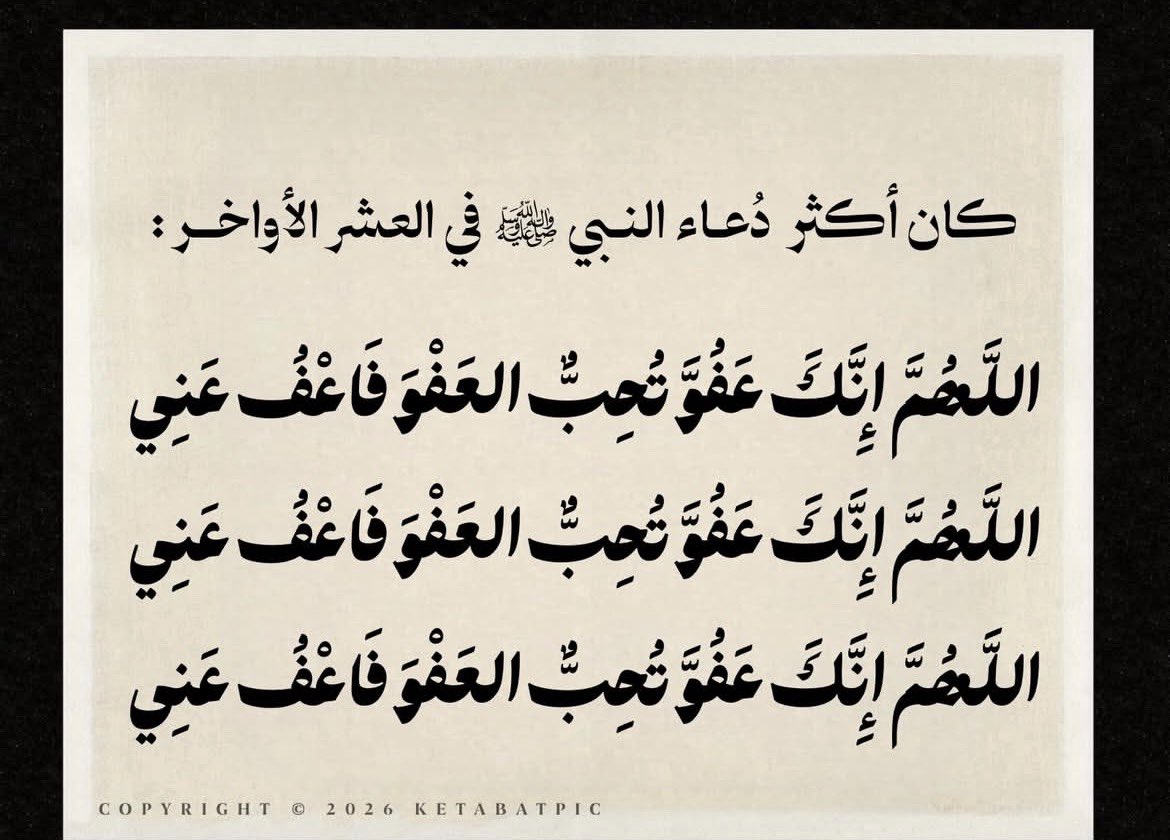 كان أكثر دُعاء النبي ﷺ في العشر الأواخر :
اللَّهُمَّ إِنَّكَ عَفُوَّ تُحِبُّ العَفْوَ فَاعْفُ عَنِي
اللَّهُمَّ إِنَّكَ عَفُوَّ تُحِبُّ العَفْوَ فَاعْفُ عَنِي
اللَّهُمَّ إِنَّكَ عَفُوَّ تُحِبُّ العَفْوَ فَاعْفُ عَنِي
COPYRIGHT © 2026 KETABATPIC